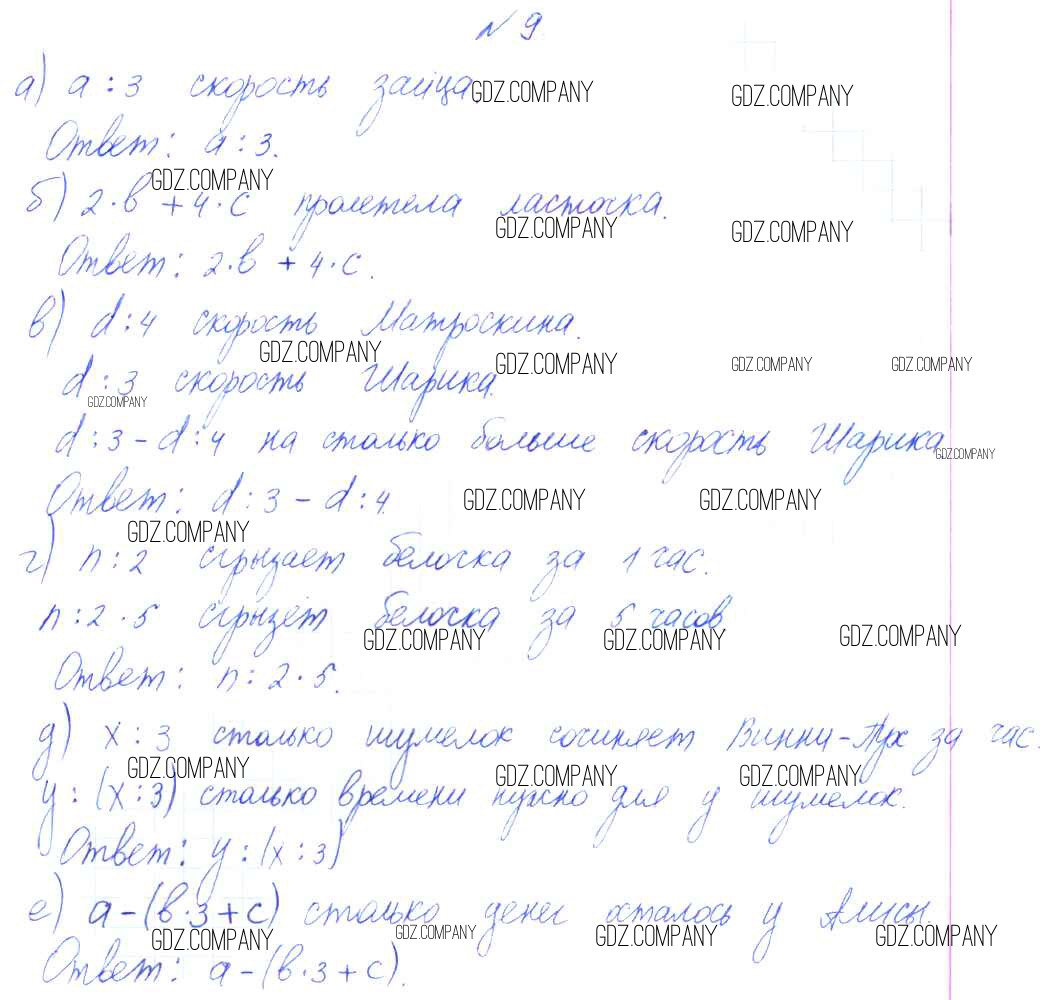 № 9
а) a : 3 скорость зайца
GDZ.COMPANY GDZ.COMPANY
Ответ: a : 3.
GDZ.COMPANY
б) 2·b + 4·c пролетела ласточка.
GDZ.COMPANY GDZ.COMPANY
Ответ: 2·b + 4·c.
в) d : 4 скорость Матроскина.
GDZ.COMPANY GDZ.COMPANY GDZ.COMPANY GDZ.COMPANY
d : 3 скорость Шарика.
GDZ.COMPANY
d : 3 - d : 4 на столько больше скорость Шарика
GDZ.COMPANY
Ответ: d : 3 - d : 4.
GDZ.COMPANY GDZ.COMPANY
GDZ.COMPANY
г) n : 2 сгрызает белочка за 1 час.
n : 2 · 5 сгрызёт белочка за 5 часов
GDZ.COMPANY GDZ.COMPANY GDZ.COMPANY
Ответ: n : 2 · 5.
д) x : 3 столько шумелок сочиняет Винни-Пух за час.
GDZ.COMPANY GDZ.COMPANY GDZ.COMPANY
y : (x : 3) столько времени нужно для y шумелок.
Ответ: y : (x : 3)
е) a - (b·3 + c) столько денег осталось у Алисы.
GDZ.COMPANY GDZ.COMPANY GDZ.COMPANY GDZ.COMPANY
Ответ: a - (b·3 + c).